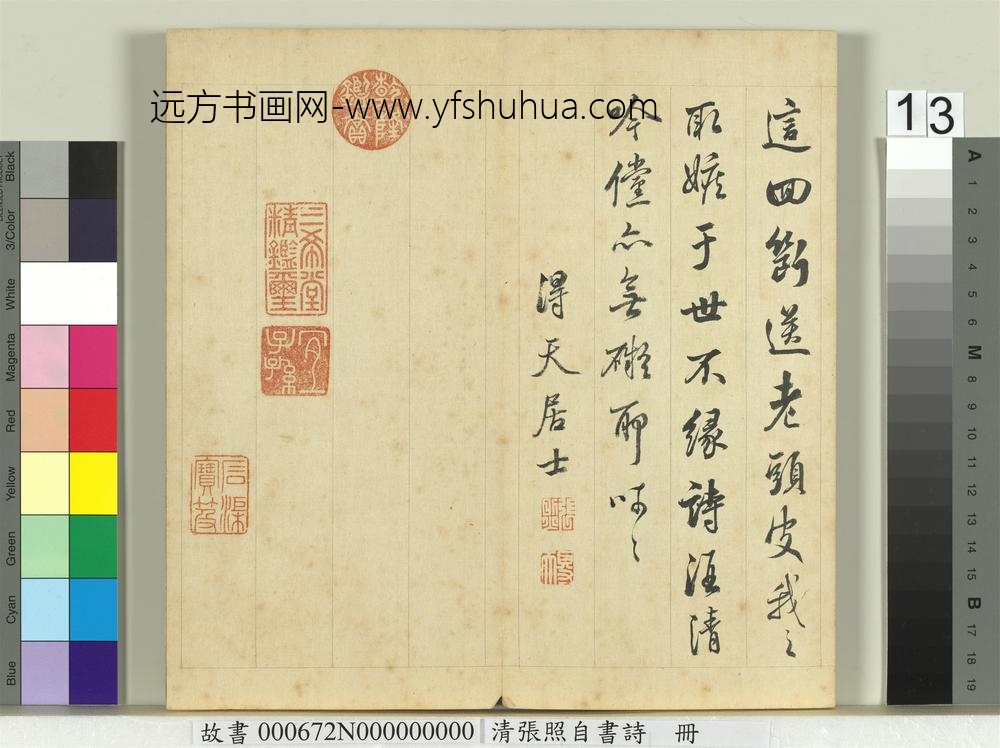 這回斷送老頭皮我々
取嫉于世不緣詩汪清
今儻亦無礙耶呵々
得天居士
張照
得天
嘉慶鑑賞
三希堂
精鑑璽
宜子
孫
石渠
寶笈
远方书画网-www.yfshuhua.com
13
A
1
2
3
4
5
6
M
8
9
10
11
12
13
14
15
B
17
18
19
Black
3/Color
White
Magenta
Red
Yellow
Green
Cyan
Blue
故書 000672N000000000 清張照自書詩 冊